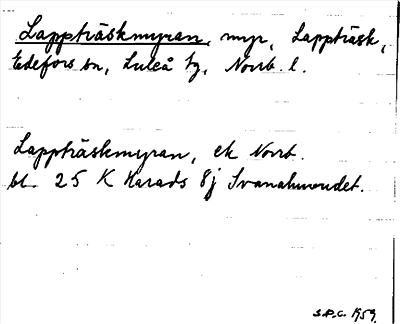 Lappträskmyran, myr, Lappträsk,
Edefors sn, Luleå tg, Norrb. l.
Lappträskmyran, ek Norrb.
bl. 25 K Harads 8j Svanahuvudet.
S.P.C. 1959.